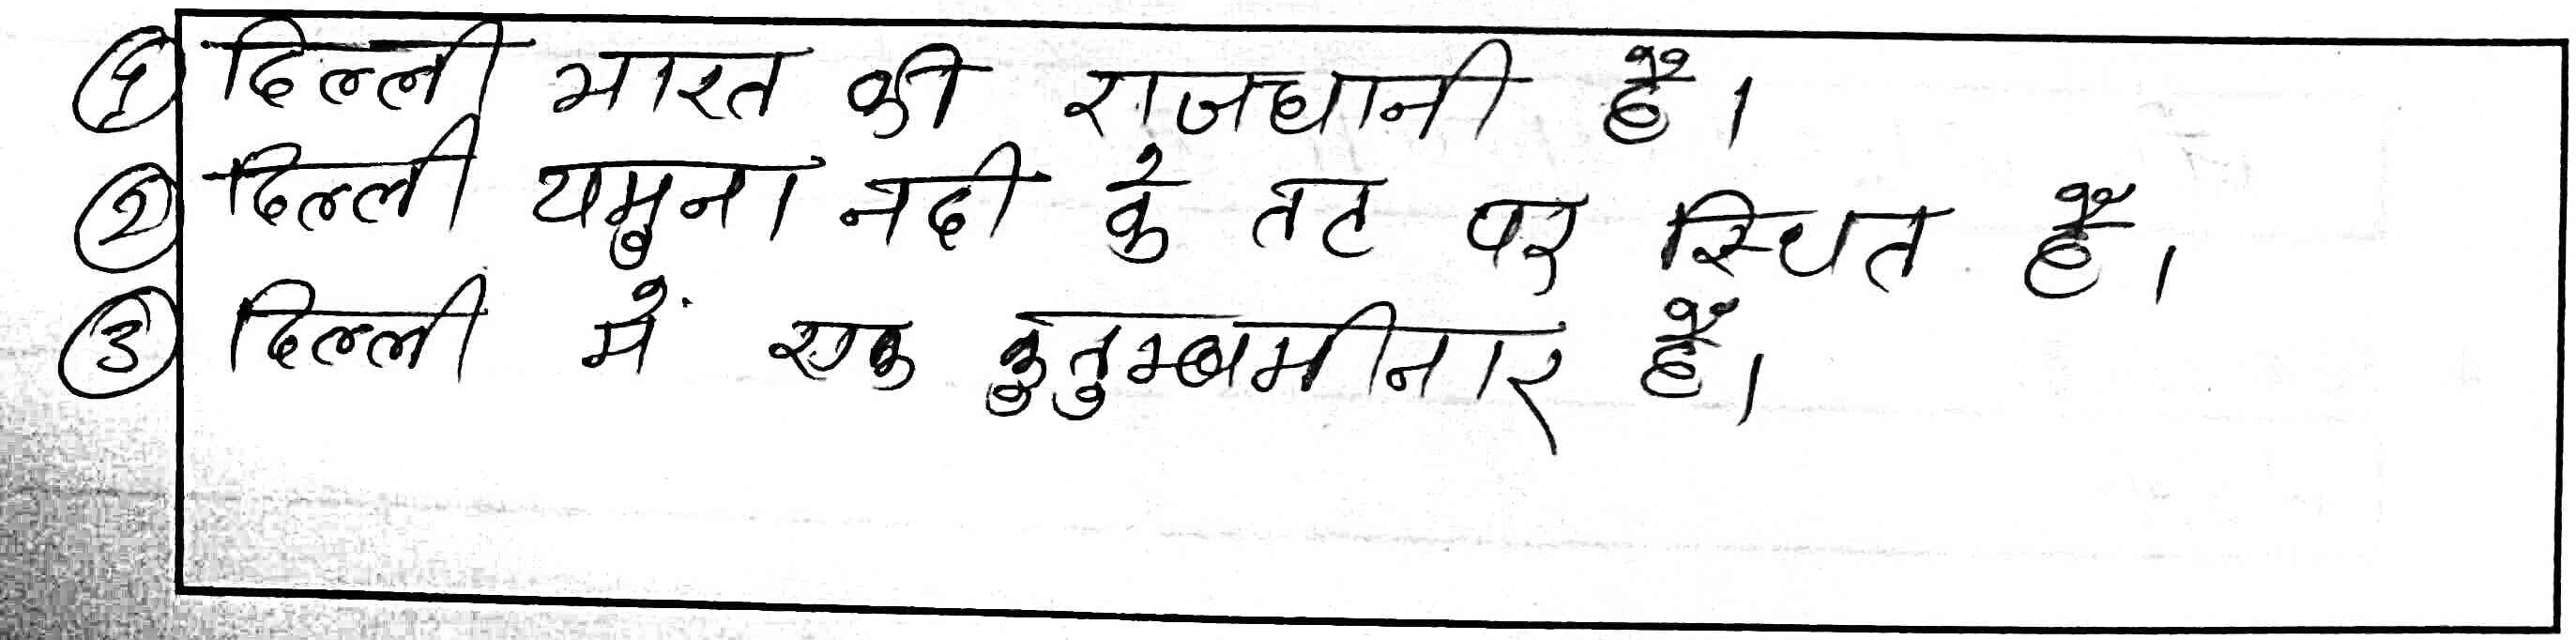 ① दिल्ली भारत की राजधानी है।
② दिल्ली यमुना नदी के तट पर स्थित है।
③ दिल्ली में एक कुतुम्बमीनार है।